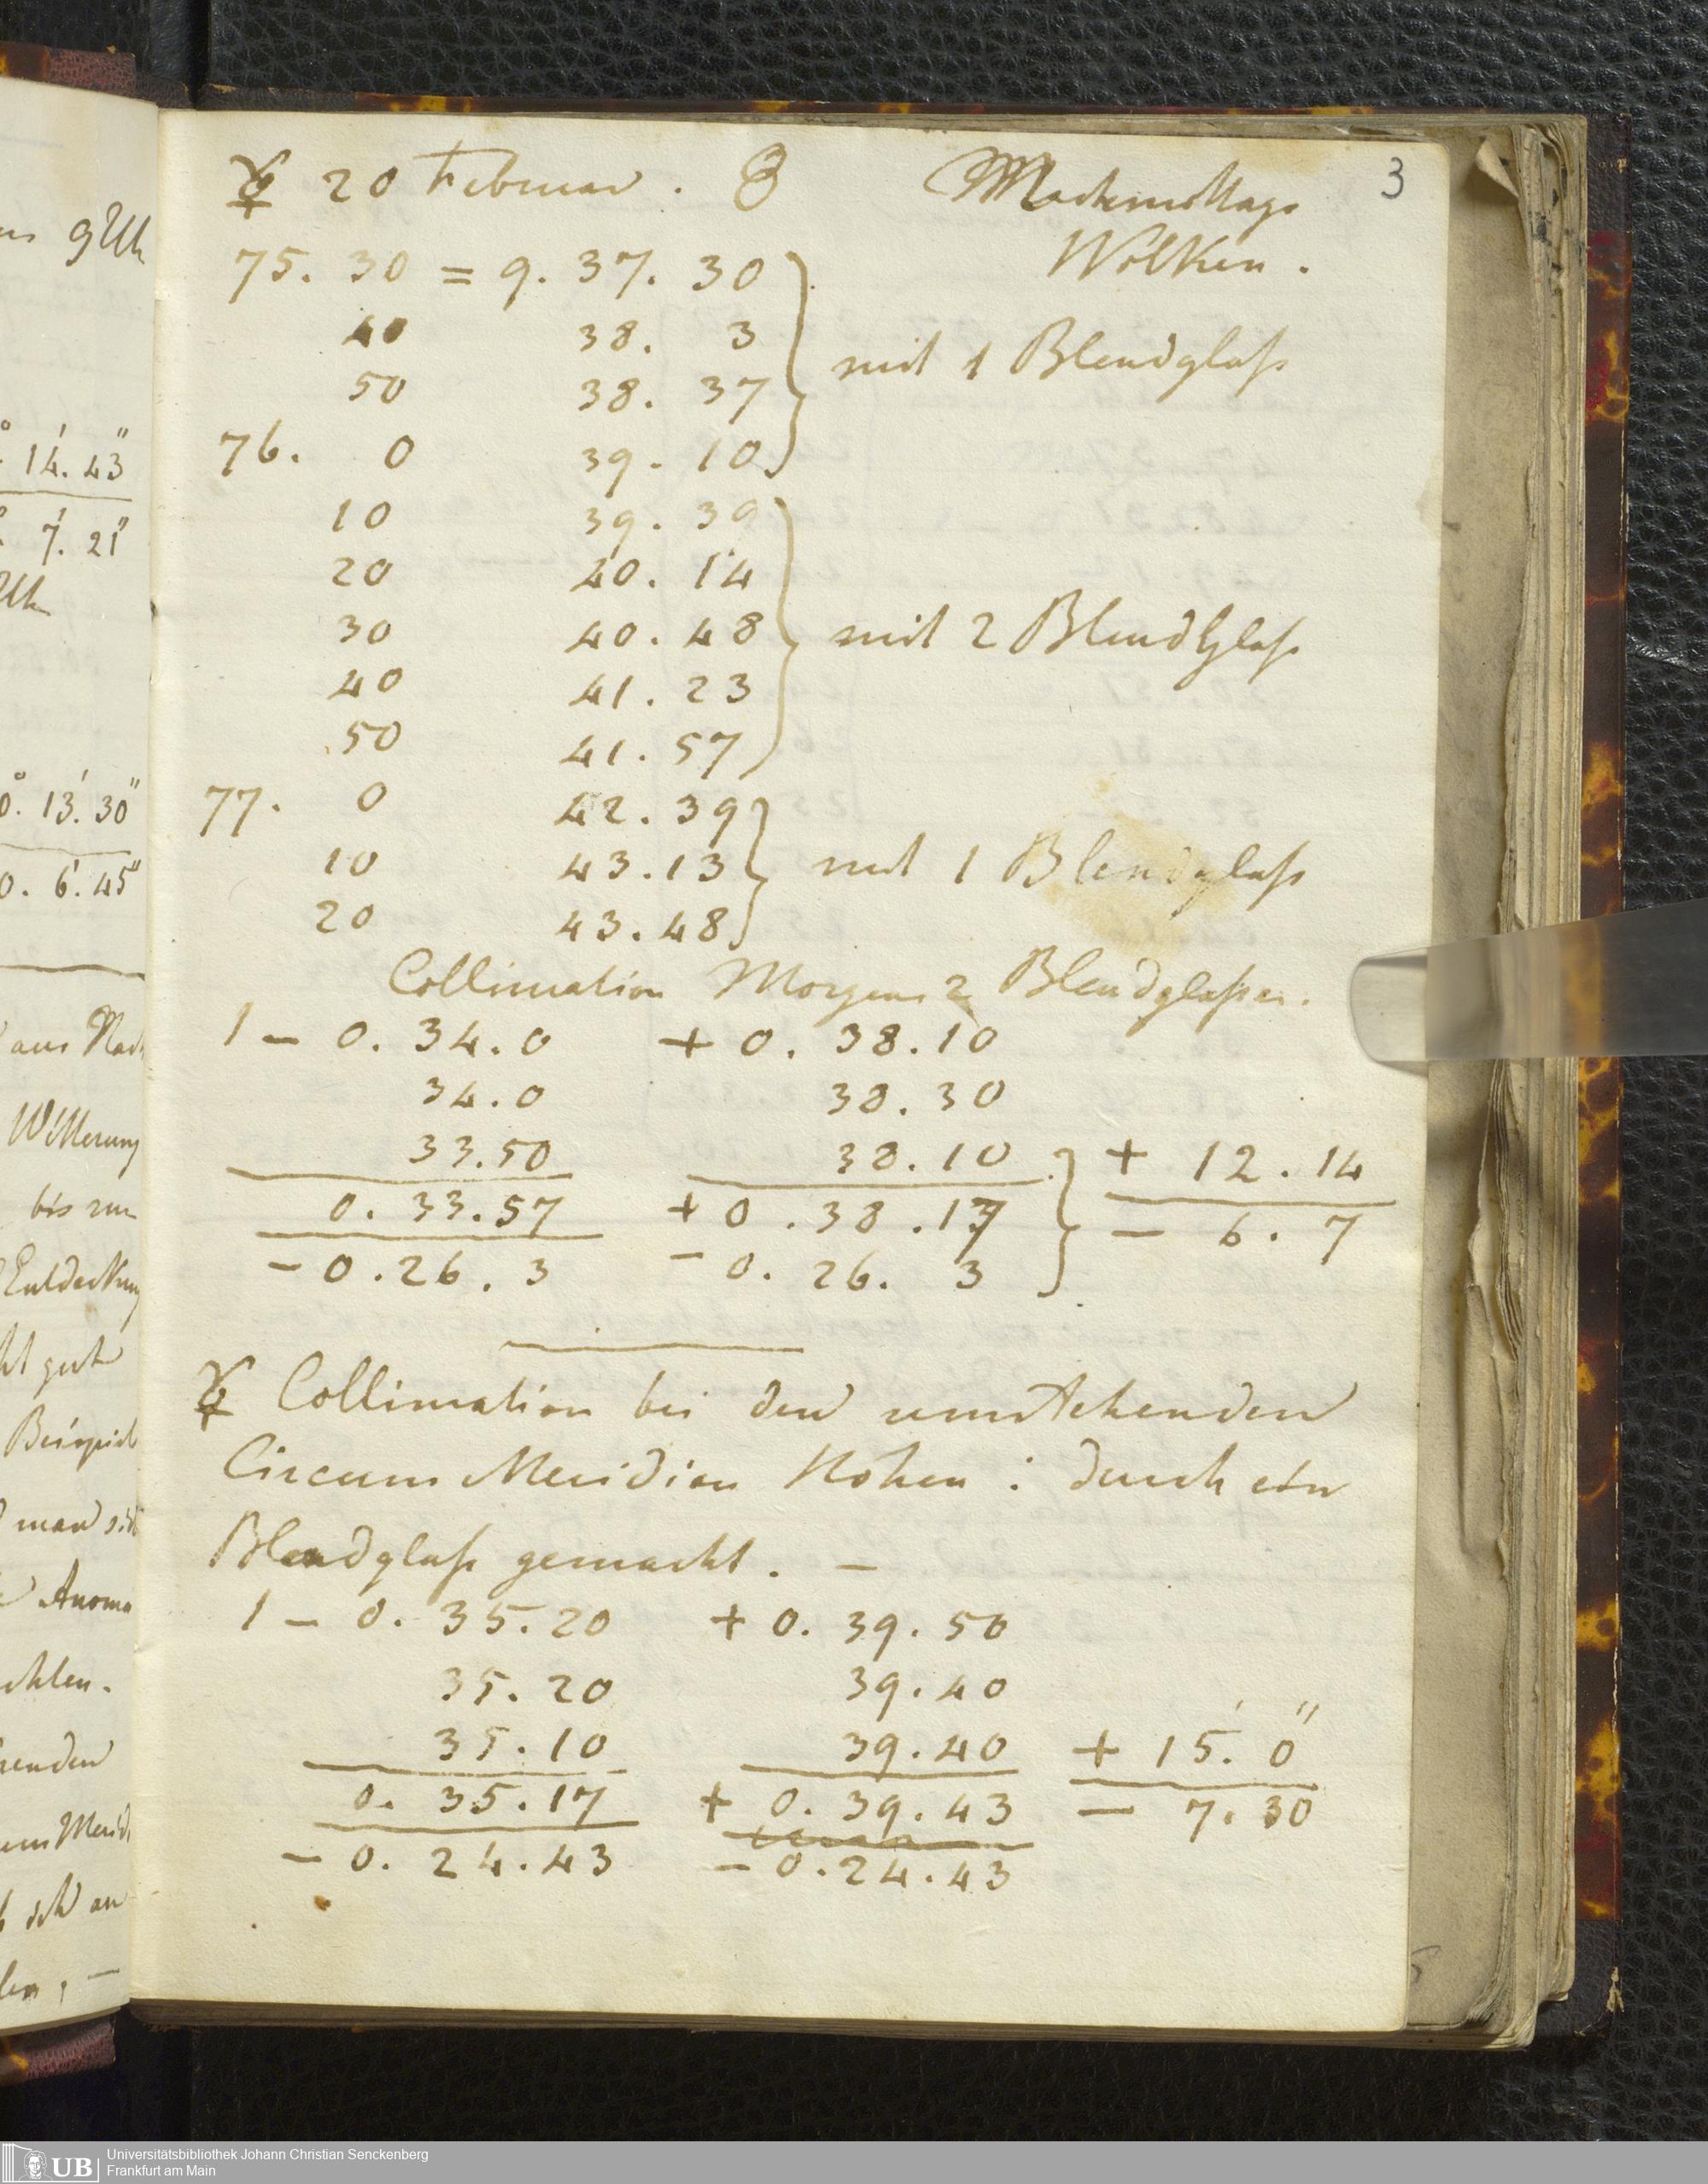 ☿ 20 Februar. 8 Nachmittags 3
Wolken.
75. 30 = 9. 37. 30
40 38. 3 mit 1 Blendglaß
50 38. 37
76. 0 39. 10
10 39. 39
20 40. 14
30 40. 48 mit 2 Blendglaß
40 41. 23
50 41. 57
77. 0 42. 39
10 43. 13 mit 1 Blendglaß
20 43. 48
Collimation Morgens 2 Blendglaßer.
1 – 0. 34. 0 + 0. 38. 10
34. 0 38. 30
33. 50 38. 10 + 12. 14
0. 33. 57 + 0. 38. 17 – 6. 7
– 0. 26. 3 – 0. 26. 3
☿ Collimation bei den umstehenden
Circum Meridian Höhen : durch ein
Blendglaß gemacht. –
1 – 0. 35. 20 + 0. 39. 50
35. 20 39. 40
35. 10 39. 40 + 15.' 0"
0. 35. 17 + 0. 39. 43 – 7. 30
– 0. 24. 43 – 0. 24. 43
9 Uh
14.' 43"
7.' 21"
Uh
0.° 13.' 30"
0. 6.' 45"
aus Nach
Witterung
bis zum
Entdeckung
gut
Beispiel
man
Anoma
chlen.
enden
um Merid
an
UB Universitätsbibliothek Johann Christian Senckenberg
Frankfurt am Main